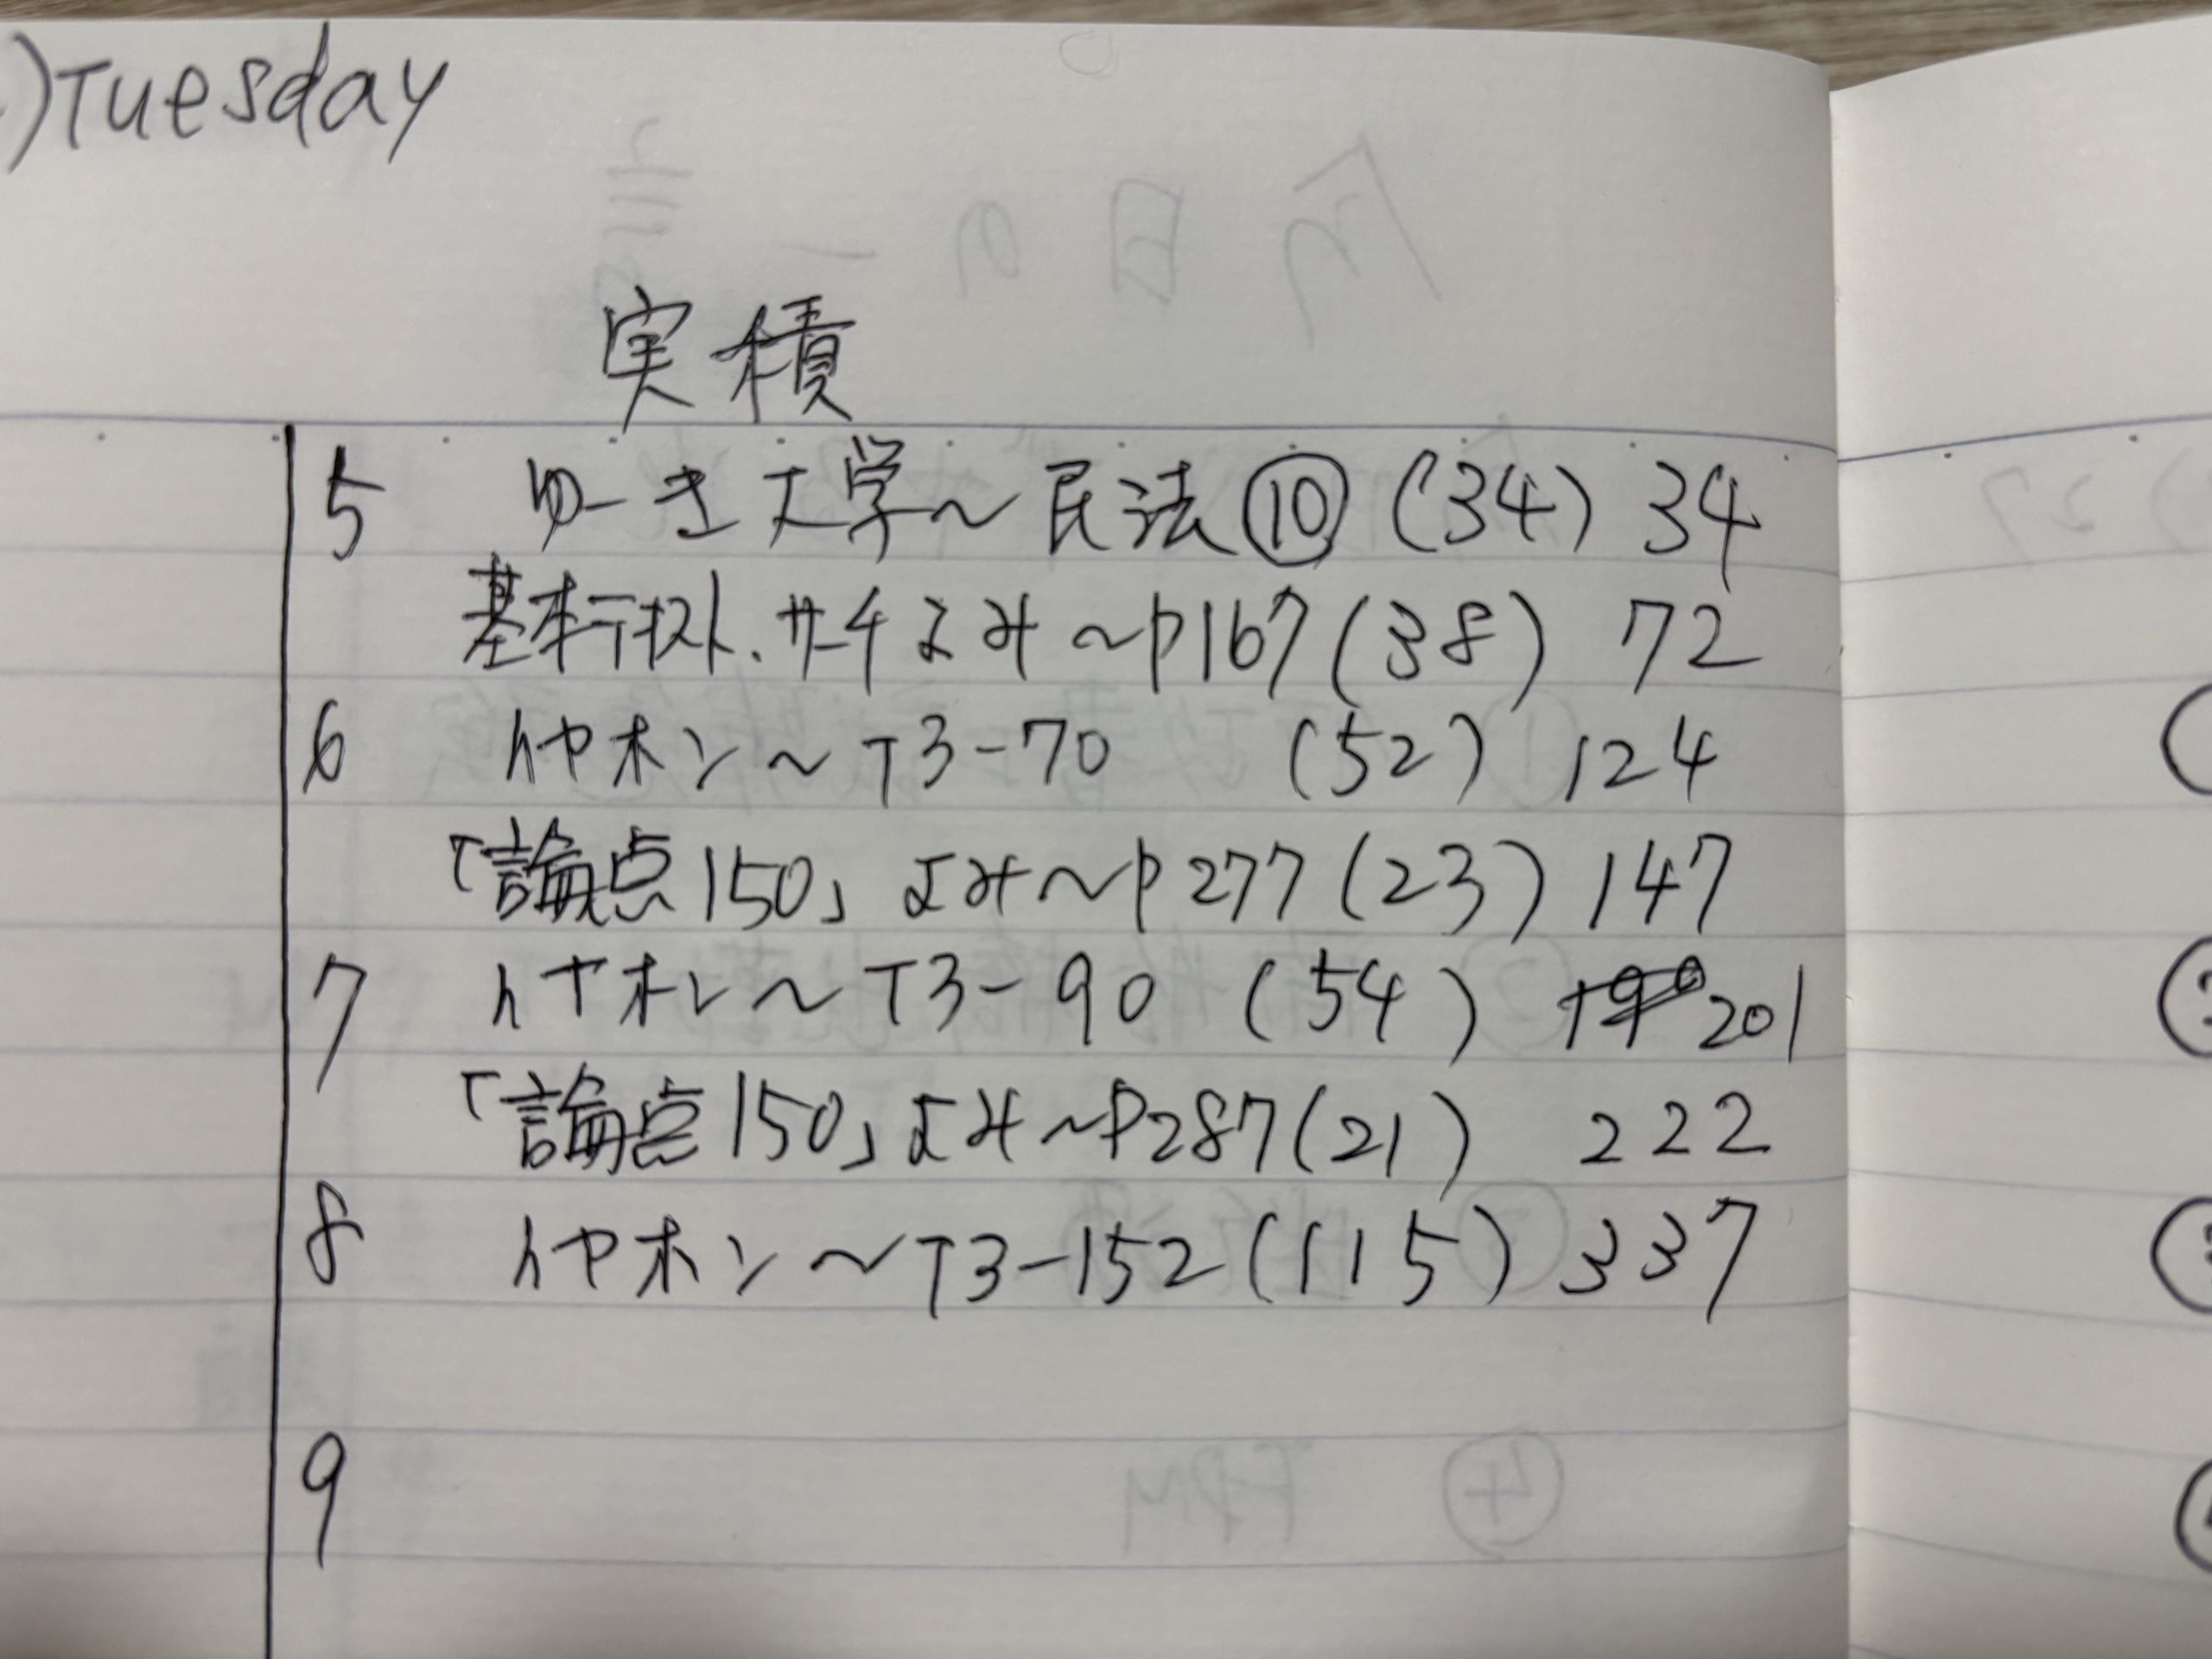 )Tuesday
実積
5 ゆーき大学～民法⑩ (34) 34
基本テキスト、サーチよみ～P167 (38) 72
6 イヤホン～T3-70 (52) 124
「論点150」よみ～P277 (23) 147
7 イヤホン～T3-90 (54) 201
「論点150」よみ～P287 (21) 222
8 イヤホン～T3-152 (115) 337
9